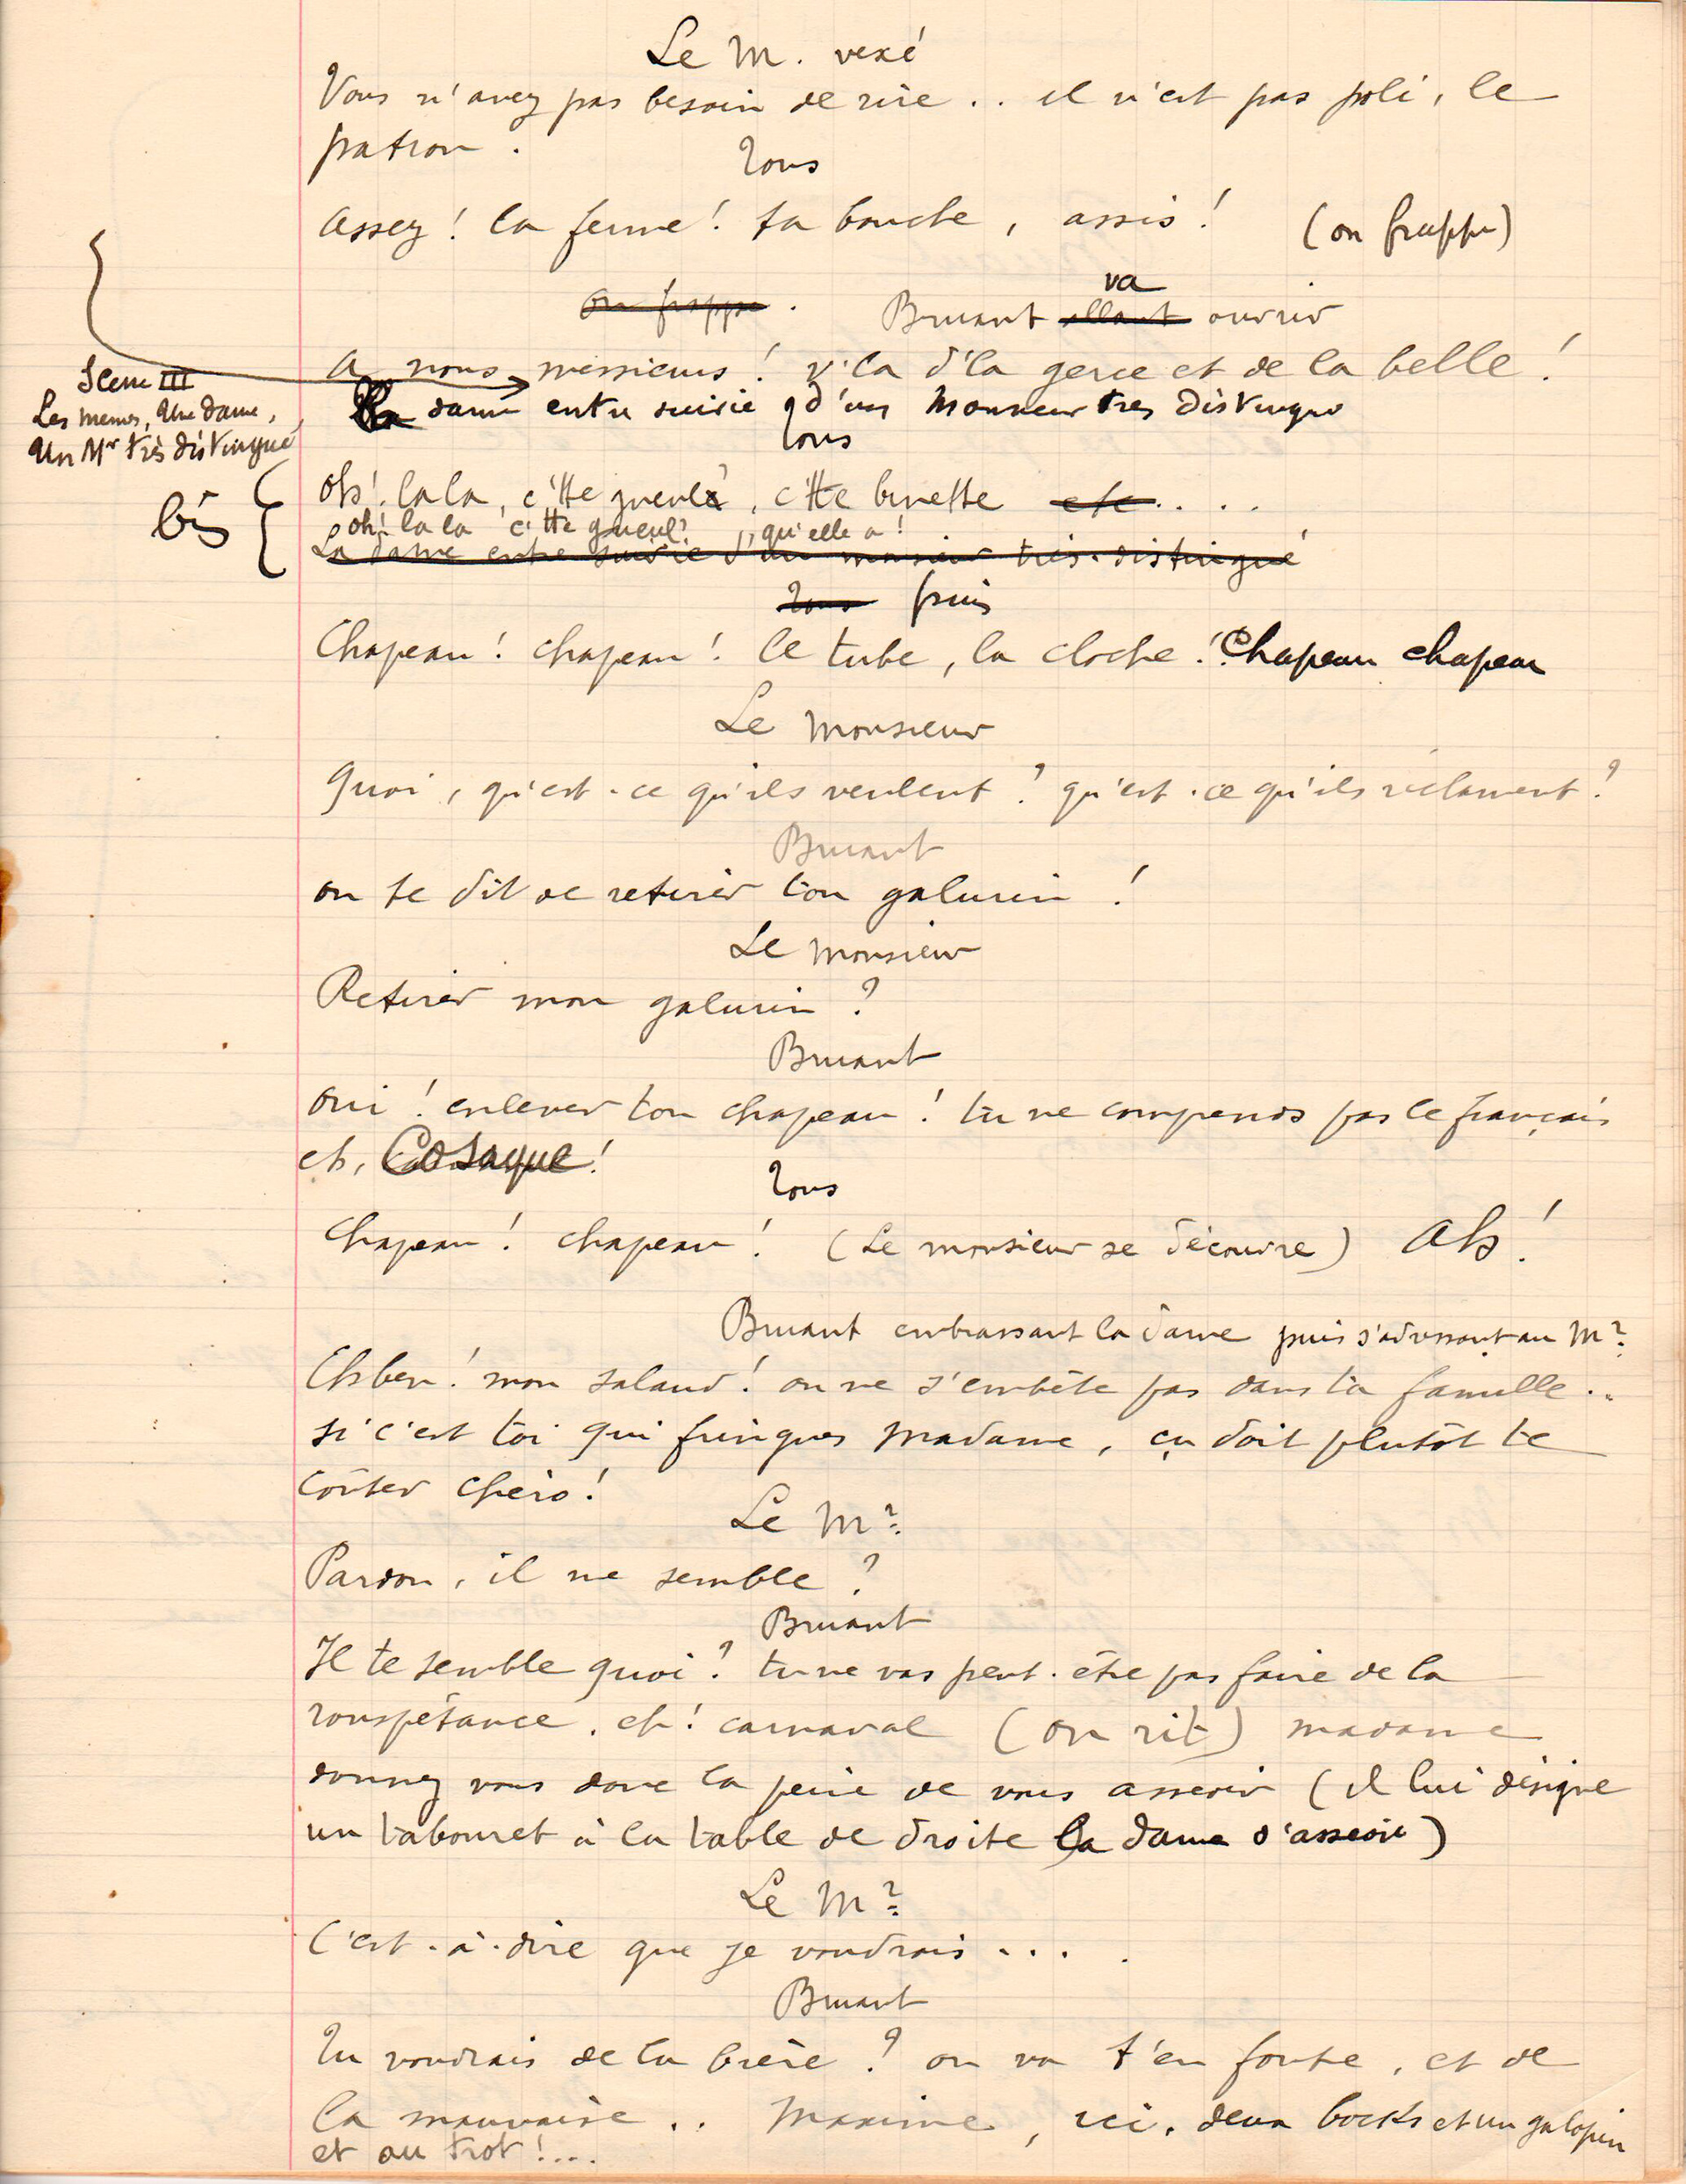 Le M. vexé
Vous n'avez pas besoin de rire .. il n'est pas poli, le
patron .
Tous
Assez ! la ferme ! ta bouche, assis ! (on frappe)
on frappe . Bruant allant va ouvrir
A nous messieurs ! v'la d'la gerce et de la belle !
Scene III
Les memes, Une dame,
Un Mr très distingué
La dame entre suivie d'un Monsieur très distingué
Tous
bis
Oh ! lala, c'tte gueule, c'tte binette etc . . . .
oh ! la la c'tte gueul' qu'elle a !
La dame entre suivie d'un monsieur très-distingué
Tous puis
Chapeau ! chapeau ! le tube, la cloche ! Chapeau chapeau
Le Monsieur
Quoi, qu'est-ce qu'ils veulent ? qu'est-ce qu'ils réclament ?
Bruant
on te dit de retirer ton galurin !
Le monsieur
Retirer mon galurin ?
Bruant
Oui ! enlever ton chapeau ! tu ne comprends pas le français
eh, Cosaque !
Tous
Chapeau ! chapeau ! (Le monsieur se découvre) Ah !
Bruant embrassant la dame puis s'adressant au Mr
Eh ben ! mon salaud ! on ne s'embête pas dans ta famille ..
si c'est toi qui fringues Madame, ça doit plutôt te
coûter chéro !
Le Mr
Pardon, il me semble ?
Bruant
Il te semble quoi ? tu ne vas peut-être pas faire de la
rouspétance. eh ! carnaval (on rit) madame
donnez vous donc la peine de vous asseoir (il lui désigne
un tabouret à la table de droite la dame s'asseoit)
Le Mr
C'est-à-dire que je voudrais . . . .
Bruant
Tu voudrais de la bière ? on va t'en foutre, et de
la mauvaise .. Maxime, ici, deux bocks et un galopin
et au trot ! ...